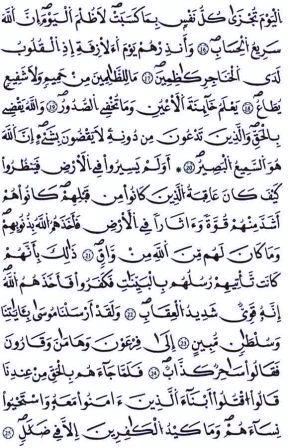 الْيَوْمَ تُجْزَىٰ كُلُّ نَفْسٍ بِمَا كَسَبَتْ لَا ظُلْمَ الْيَوْمَ إِنَّ اللَّهَ
سَرِيعُ الْحِسَابِ ١٦ وَأَنذِرْهُمْ يَوْمَ الْأَزِفَةِ إِذِ الْقُلُوبُ
لَدَى الْحَنَاجِرِ كَاظِمِينَ ١٧ مَا لِلظَّالِمِينَ مِنْ حَمِيمٍ وَلَا شَفِيعٍ
يُطَاعُ ١٨ يَعْلَمُ خَائِنَةَ الْأَعْيُنِ وَمَا تُخْفِي الصُّدُورُ ١٩ وَاللَّهُ يَقْضِي
بِالْحَقِّ وَالَّذِينَ تَدْعُونَ مِن دُونِهِ لَا يَقْضُونَ بِشَيْءٍ إِنَّ اللَّهَ
هُوَ السَّمِيعُ الْبَصِيرُ ٢٠ أَوَلَمْ يَسِيرُوا فِي الْأَرْضِ فَيَنظُرُوا
كَيْفَ كَانَ عَاقِبَةُ الَّذِينَ كَانُوا مِن قَبْلِهِمْ كَانُوا هُمْ
أَشَدَّ مِنْهُمْ قُوَّةً وَءَاثَارًا فِي الْأَرْضِ فَأَخَذَهُمُ اللَّهُ بِذُنُوبِهِمْ
وَمَا كَانَ لَهُم مِّنَ اللَّهِ مِن وَاقٍ ٢١ ذَٰلِكَ بِأَنَّهُمْ
كَانَت تَّأْتِيهِمْ رُسُلُهُم بِالْبَيِّنَاتِ فَكَفَرُوا فَأَخَذَهُمُ اللَّهُ
إِنَّهُ قَوِيٌّ شَدِيدُ الْعِقَابِ ٢٢ وَلَقَدْ أَرْسَلْنَا مُوسَىٰ بِـَٔايَاتِنَا
وَسُلْطَانٍ مُّبِينٍ ٢٣ إِلَىٰ فِرْعَوْنَ وَهَامَانَ وَقَارُونَ
فَقَالُوا سَاحِرٌ كَذَّابٌ ٢٤ فَلَمَّا جَاءَهُم بِالْحَقِّ مِنْ عِندِنَا
قَالُوا اقْتُلُوا أَبْنَاءَ الَّذِينَ ءَامَنُوا مَعَهُ وَاسْتَحْيُوا
نِسَاءَهُمْ وَمَا كَيْدُ الْكَافِرِينَ إِلَّا فِي ضَلَالٍ ٢٥